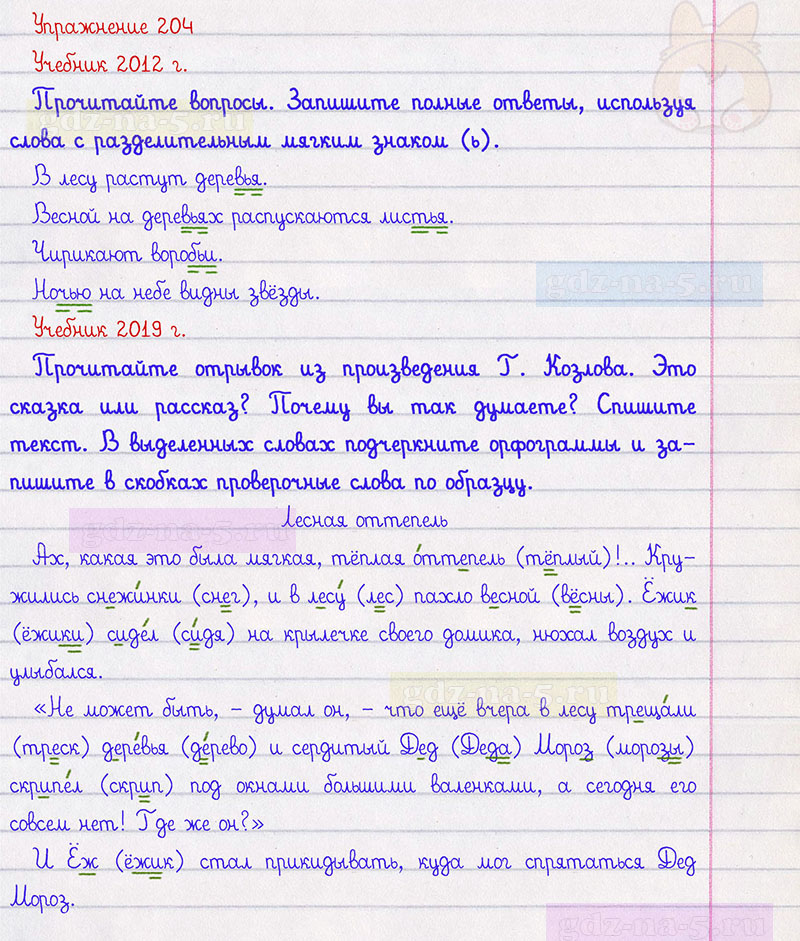 Упражнение 204
Учебник 2012 г.
gdz-na-5.ru
Прочитайте вопросы. Запишите полные ответы, используя
слова с разделительным мягким знаком (ь).
В лесу растут деревья.
Весной на деревьях распускаются листья.
Чирикают воробьи.
gdz-na-5.ru
Ночью на небе видны звёзды.
Учебник 2019 г.
Прочитайте отрывок из произведения Г. Козлова. Это
сказка или рассказ? Почему вы так думаете? Спишите
текст. В выделенных словах подчеркните орфограммы и за-
пишите в скобках проверочные слова по образцу.
gdz-na-5.ru
Лесная оттепель
Ах, какая это была мягкая, тёплая о́ттепель (тёплый)!.. Кру-
жились снежи́нки (снег), и в лесу́ (лес) пахло весной (вёсны). Ёжик
(ёжики) сиде́л (си́дя) на крылечке своего домика, нюхал воздух и
улыбался.
gdz-na-5.ru
«Не может быть, – думал он, – что ещё вчера в лесу треща́ли
(треск) дере́вья (де́рево) и сердитый Дед (Деда) Мороз (морозы)
скрипе́л (скрип) под окнами большими валенками, а сегодня его
совсем нет! Где же он?»
И Ёж (ёжик) стал прикидывать, куда мог спрятаться Дед
Мороз.
gdz-na-5.ru